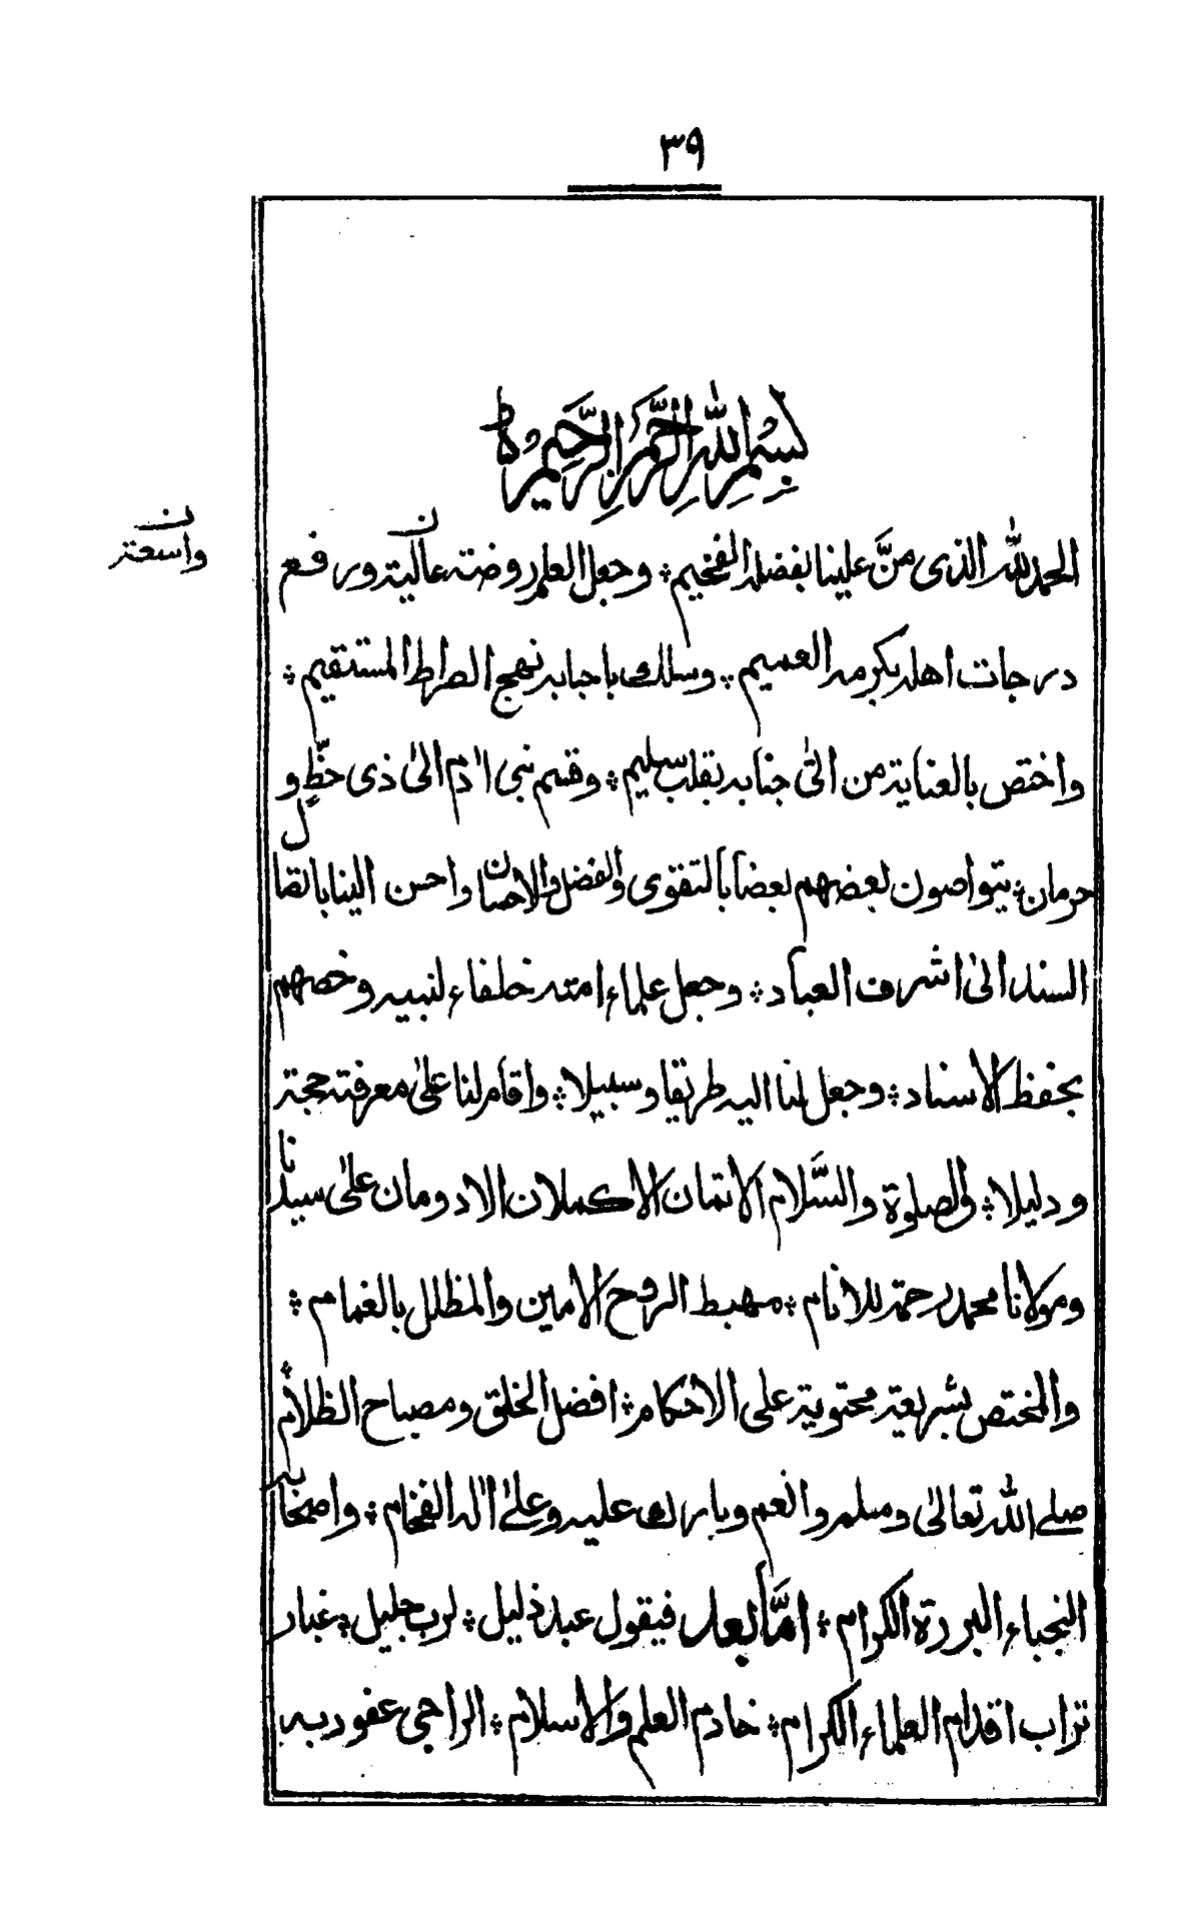 ٣٩
بسم الله الرحمن الرحيم ٥
الحمد لله الذى منَّ علينا بفضله الفخيم ؛ وجعل العلم روضته عالية ورفع
ن
ن واسعة
درجات اهله بكرمه العميم ؛ وسلك باحبابه نهج الصراط المستقيم ؛
واختص بالعناية من اتى جنابه بقلب سليم ؛ وقسم بنى اٰدم الىٰ ذى حظٍّ و
حرمان ؛ يتواصون بعضهم بعضا بالتقوى والفضل والاحسان واحسن الينا باتصال
السند الىٰ اشرف العباد ؛ وجعل علماء امته خلفاء لنبيه وخصهم
بحفظ الاسناد ؛ وجعل لنا اليه طريقا وسبيلا ؛ واقام لنا علىٰ معرفته حجة
ودليلا ؛ والصلوة والسَّلام الاتمان الاكملان الادومان علىٰ سيدنا
ومولانا محمد رحمة للانام ؛ مهبط الروح الامين والمظلل بالغمام ؛
والمختص بشريعة محتوية على الاحكام ؛ افضل الخلق ومصباح الظلام ؛
صلے الله تعالىٰ وسلم وانعم وبارك عليه وعلىٰ اٰله الفخام ؛ واصحابه
النجباء البررة الكرام ؛ امَّا بعد فيقول عبد ذليل ؛ لرب جليل ؛ غبار
تراب اقدام العلماء الكرام ؛ خادم العلم والاسلام ؛ الراجى عفو ربه